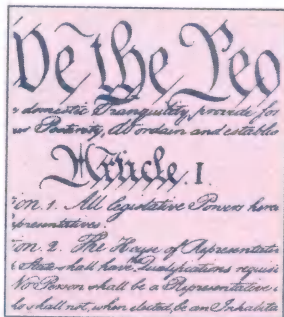 We the Peo
domestic Tranquility, provide for
our Posterity, do ordain and establis
Article. I.
ion. 1. All legislative Powers here
epresentatives.
ion. 2. The House of Representati
State shall have the Qualifications requisi
No Person shall be a Representative
ho shall not, when elected, be an Inhabita